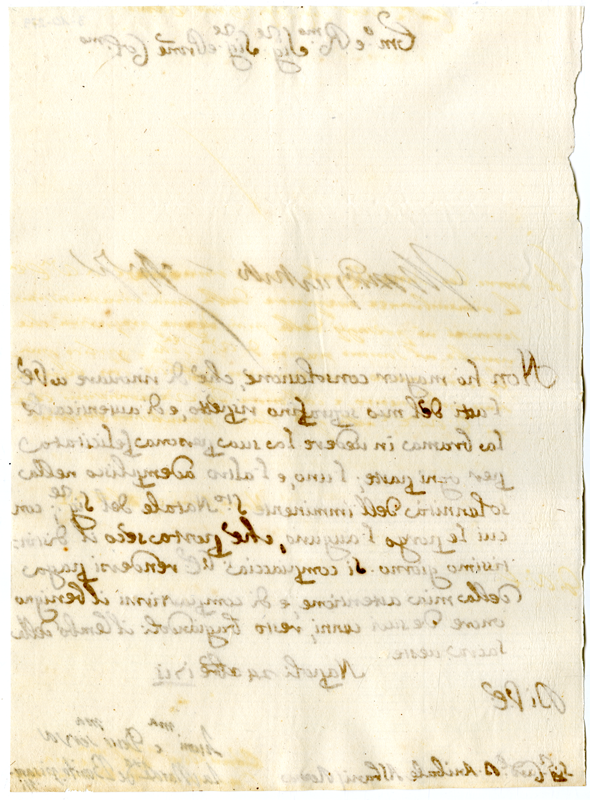 Em.º e R.mo Sig.re Sig.re
e Sig. Prone Col.mo
Non ho maggior consolazione, che di rinovare a V.E.
l'atti del mio rispetto, e di autenticarle
la brama in vedere la sua persona felicitata
per ogni parte; l'uno, e l'altro adempisco nella
solennità dell'imminente S.to Natale del Sig.re; con
cui le porgo l'augurio, che porta seco il
giorno. Si compiaccia V.E. rendersi paga
della mia attenzione, e di compartirmi il benigno
onore de suoi cenni, resto baciandoli il lembo della
sacra veste.
Napoli
Di V.E.
Um.ma e Dev.ma serva
Sig.r Card.le D. Anibale Albani Roma